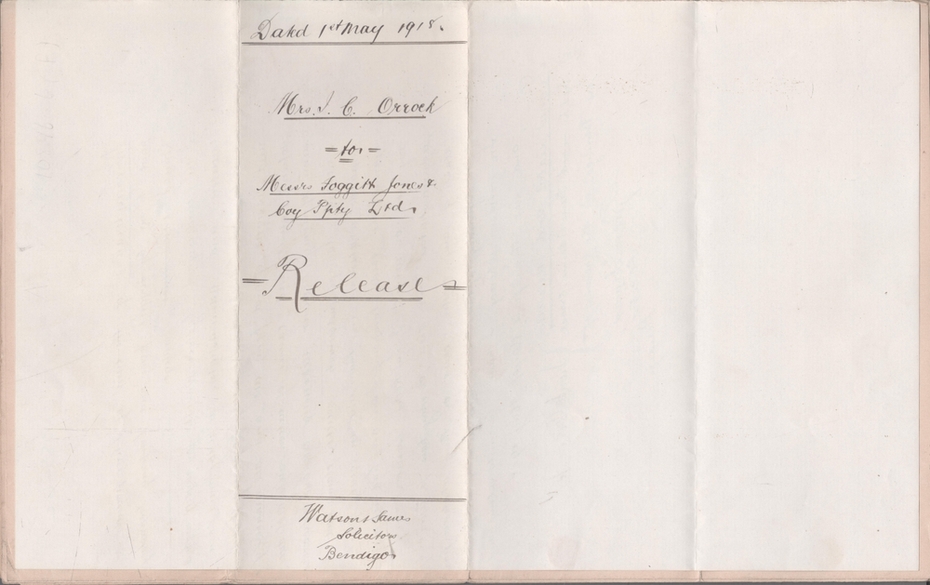 Dated 1st May 1918.
Mrs. I. C. Orrock
= to =
Messrs Foggitt Jones &
Coy Ppty Ltd.
= Release =
Watson & James
Solicitors
Bendigo